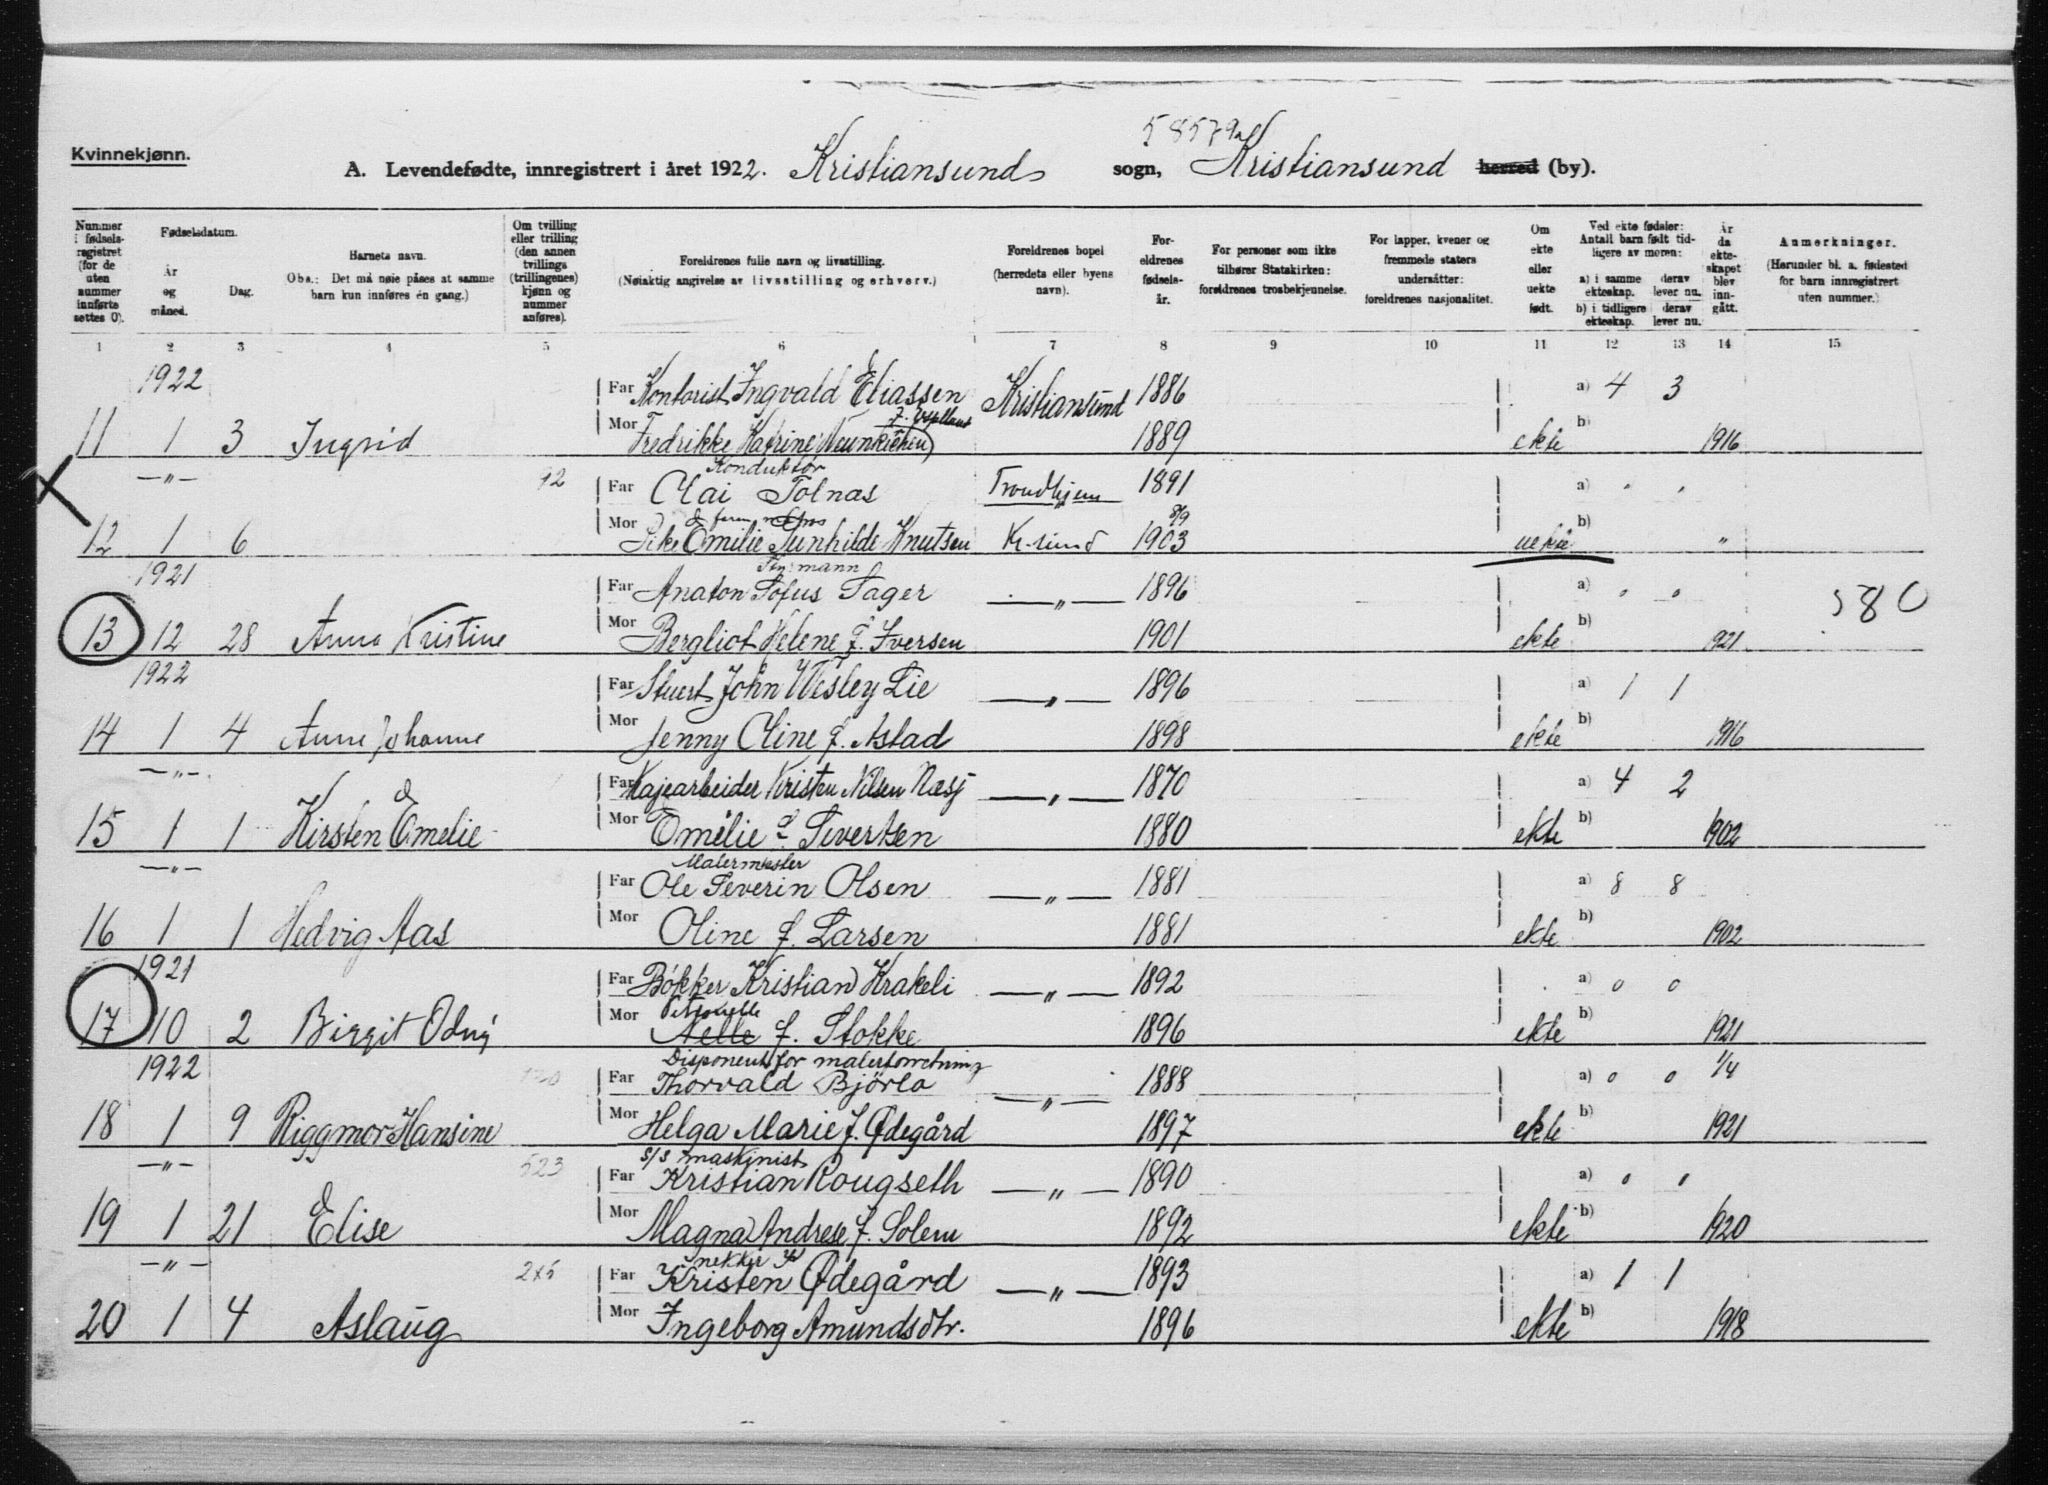 58579
Kvinnekjønn.
A. Levendefødte, innregistrert i året 1922. Kristiansund sogn, Kristiansund herred (by).
Nummer i fødselsregistret (for de uten nummer innførte settes 0).
Fødselsdatum.
År og måned.
Dag.
Barnets navn.
Obs.: Det må nøie påses at samme barn kun innføres én gang.)
Om tvilling eller trilling (den annen tvillings (trillingenes) kjønn og nummer anføres).
Foreldrenes fulle navn og livsstilling.
(Nøiaktig angivelse av livsstilling og erhverv.)
Foreldrenes bopel (herredets eller byens navn).
Foreldrenes fødselsår.
For personer som ikke tilhører Statskirken: foreldrenes trosbekjennelse.
For lapper, kvener og fremmede staters undersåtter: foreldrenes nasjonalitet.
Om ekte eller uekte født.
Ved ekte fødsler: Antall barn født tidligere av moren:
a) i samme ekteskap. derav lever nu.
b) i tidligere ekteskap. derav lever nu.
År da ekteskapet blev inngått.
Anmerkninger.
(Herunder bl. a. fødested for barn innregistrert uten nummer.)
1 2 3 4 5 6 7 8 9 10 11 12 13 14 15
1922 Far Kontorist Ingvald Eliassen Kristiansund 1886 a) 4 3
11 1 3 Ingrid Mor Fredrikke Katrine 1889 ekte b) 1916
—"— 92 Konduktør
Far Olai Tolnas Trondhjem 1891 a) " "
8/9
12 1 6 Mor Pike Emilie Gunhilde Knutsen Kr.sund 1903 uekte b) "
1921 Styrmann
Far Anaton Sofus Fager —"— 1896 a) 0 0 580
13 12 28 Anna Kristine Mor Bergliot Helene f. Iversen 1901 ekte b) 1921
1922 Far Stuert John Wesley Lie —"— 1896 a) 1 1
14 1 4 Anne Johanne Mor Jenny Oline f. Astad 1898 ekte b) 1916
—"— Far Kajearbeider Kristen Nilsen Næsj —"— 1870 a) 4 2
15 1 1 Kirsten Emelie Mor Emilie f. Sivertsen 1880 ekte b) 1902
—"— Malermester
Far Ole Severin Olsen —"— 1881 a) 8 8
16 1 1 Hedvig Aas Mor Oline f. Larsen 1881 ekte b) 1902
1921 Far Bøkker Kristian Krakeli —"— 1892 a) 0 0
Petronelle
17 10 2 Birgit Odny Mor Nelle f. Stokke 1896 ekte b) 1921
1922 Disponent for malerforretning
120 Far Thorvald Bjørlo —"— 1888 a) 0 0 1/4
18 1 9 Riggmor Hansine Mor Helga Marie f. Ødegård 1897 ekte b) 1921
—"— 523 s/s maskinist
Far Kristian Rougseth —"— 1890 a) " "
19 1 21 Elise Mor Magna Andrese f. Solem 1892 ekte b) 1920
—"— 245 Snekker
Far Kristen Ødegård —"— 1893 a) 1 1
20 1 4 Aslaug Mor Ingeborg Amundsdtr. 1896 ekte b) 1918